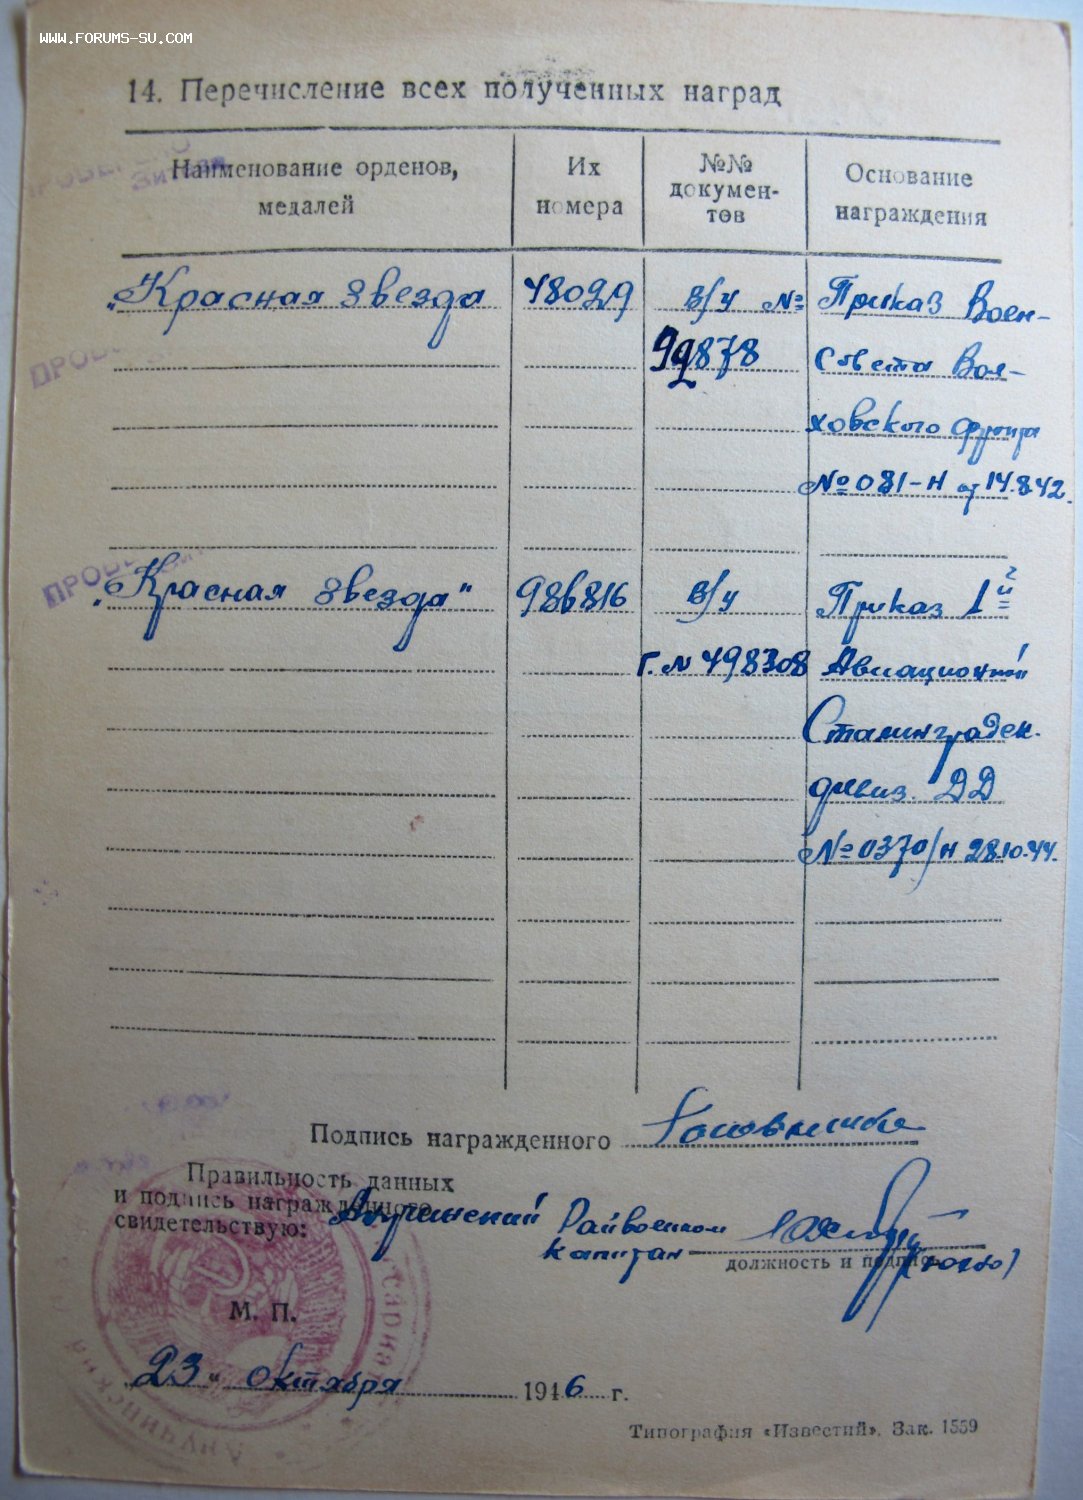 WWW.FORUMS-SU.COM
14. Перечисление всех полученных наград
Наименование орденов, медалей
Их номера
№№ докумен-тов
Основание награждения
"Красная Звезда 48029 в/у № Приказ Воен-
99878 Совета Вол-
ховского фронта
№ 081-н от 14.8.42.
"Красная Звезда" 986816 в/у Приказ 1й
Г. № 498308 Авиационной
Сталинград
дивиз. ДД
№ 0370/н 28.10.44.
ПРОВЕ
Подпись награжденного
Правильность данных
и подпись награжденного
свидетельствую:
Анучинский Райвоенком
капитан
должность и подпись
М. П.
23 " октября 1946 г.
Типография «Известий». Зак. 1559